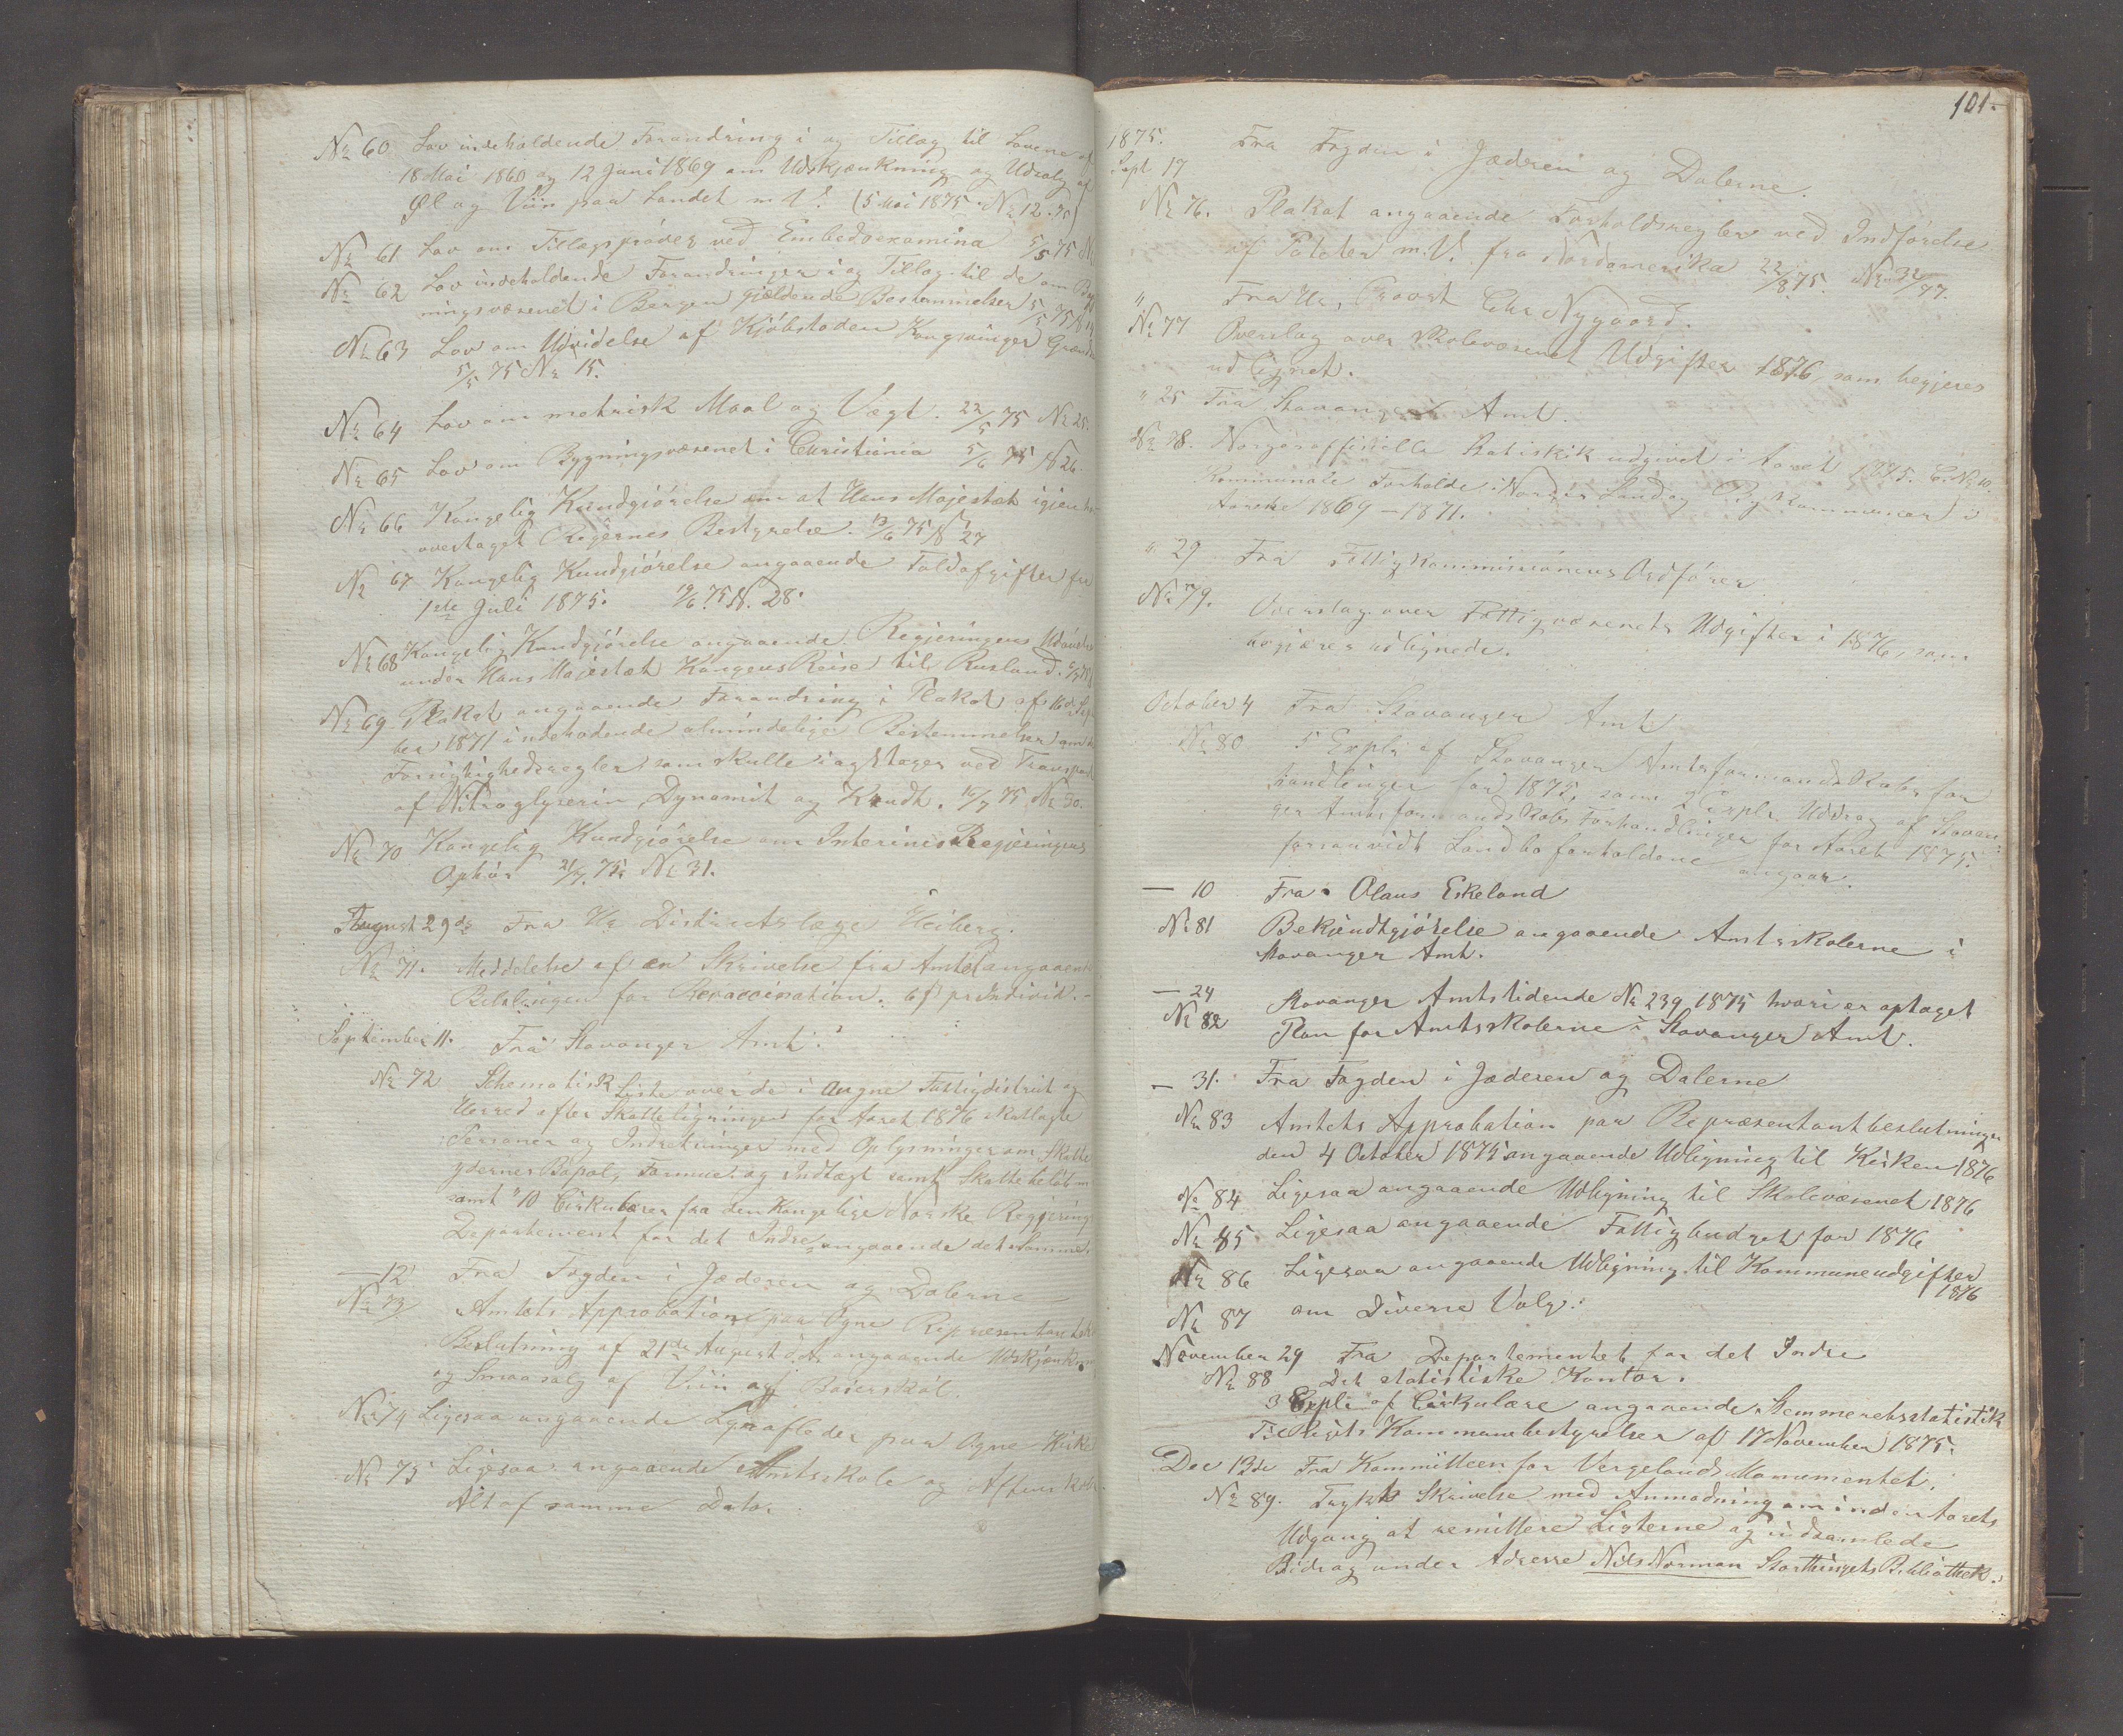 № 60 Lov indeholdende Forandring i og Tillæg til Lovene af
18 Mai 1860 og 12 Juni 1869 om Udskjænkning og Udsalg af
Øl og Viin paa Landet m V. (5 Mai 1875 № 12.75)
№ 61 Lov om Tillægsprøver ved Embedsexamina 5/5 75 №
№ 62 Lov indeholdende Forandringer i og Tillæg til de om Byg
ningsvæsenet i Bergen gjældende Bestemmelser 5/5 75 № 14
№ 63 Lov om Udvidelse af Kjøbstaden Kongsvinger Grændse
5/5 75 № 15.
№ 64 Lov om metrisk Maal og Vægt. 22/5 75 № 25.
№ 65 Lov om Bygningsvæsenet i Christiania 5/6 75 № 26.
№ 66 Kongelig Kundgjørelse om at Hans Majestæt igjen har
overtaget Rigernes Bestyrelse. 13/6 75 № 27
№ 67 Kongelig Kundgjørelse angaaende Toldafgifter fra
1ste Juli 1875. 19/6 75 N. 28.
№ 68 Kongelig Kundgjørelse angaaende Regjeringens
under Hans Majestæt Kongens Reise til Rusland.
№ 69 Plakat angaaende Forandring i Plakat af 16de Septem
ber 1871 indehodende almindelige Bestemmelser om de
Forsigtighedsregler som skulle iagttages ved Transport
af Nitroglyserin, Dynamit og Krudt. 16/7 75 № 30.
№ 70 Kongelig Kundgjørelse om Interims Regjeringens
Ophør 21/7. 75. № 31.
August 29de Fra Hr Districtslæge Heiberg.
№ 71. Meddelelse af en Skrivelse fra Amtet angaaende
Betalingen for Revaccination. 6 f pr Individ. -
September 11. Fra Stavanger Amt.
№ 72 Schematisk Liste over de i Augne Fattigdistrict og
Herred efter Skatteligningen for Aaret 1876 skatlagte
Personer og Indretninger med Oplysninger om Skatte
ydernes Bopæl, Formue og Indtægt samt Skattebeløb m
samt 10 Cirkulærer fra den Kongelige Norske Regjerings
Departement for det Indre angaaende det samme.
- 12 Fra Fogden i Jæderen og Dalerne
№ 73 Amtets Approbation paa Ogne Repræsentantsk
Beslutning af 21de August d.A. angaaende Udskjænkning
og Smaasalg af Viin og Baierskøl.
№ 74 Ligesaa angaaende Lynafleder paa Ogne Kirke
№ 75 Ligesaa angaaende Amtsskole og Aftenskole
Alt af samme Dato.
101.
1875.
Sept 17 Fra Fogden i Jæderen og Dalerne.
№ 76. Plakat angaaende Forholdsregler ved Indførelse
af Poteter m.V. fra Nordamerika 22/8 75. № 32/77.
" Fra Hr, Provst Chr Nygaard.
№ 77 Overslag over Skolevæsenet Udgifter 1876, som begjeres
udlignet.
" 25 Fra Stavanger Amt.
№ 78. Norges officielle Statistik udgivet i Aaret 1875. C. № 10
Kommunale Forholde i Norges Land og Bykommuner i
Aarene 1869 - 1871.
" 29 Fra Fattigkommissionens Ordfører
№ 79. Overslag over Fattigvæsenets Udgifter i 1876, som
begjæres udlignede.
October 4 Fra Stavanger Amt
№ 80 5 Expl. af Stavanger Amtsformandskabs for
handlinger for 1875, samt 2 Expl. Uddrag af Stavan
ger Amtsformandskabs Forhandlinger for Aaret 1875.
forsaavidt Landboforholdene angaar.
- 10 Fra Olaus Eskeland
№ 81 Bekjendtgjørelse angaaende Amtsskolerne i
Stavanger Amt.
- 24 Stavanger Amtstidende № 239, 1875 hvori er optaget
№ 82 Plan for Amtsskolerne i Stavanger Amt.
- 31. Fra Fogden i Jæderen og Dalerne
№ 83 Amtets Approbation paa Repræsentantbeslutninger
den 4 October 1875 angaaende Udligning til Kirken 1876
№ 84 Ligesaa angaaende Udligning til Skolevæsenet 1876
№ 85 Ligesaa angaaende Fattigbudget for 1876
№ 86 Ligesaa angaaende Udligning til Kommuneudgifter
1876
№ 87 om Diverse Valg.
November 29 Fra Departementet for det Indre
№ 88 Det statistiske Kontor.
3 Expl. af Cirkulære angaaende Stemmeretsstatistik
Til Rigets Kommunebestyrelser af 17 November 1875.
Dec 13de Fra Kommitteen for Vergelands Monumentet.
№ 89. Trykt Skrivelse med Anmodning om inden Aarets
Udgang at remittere Listerne og indsamlede
Bidrag under Adresse Nils Norman Storthingets Bibliothek.